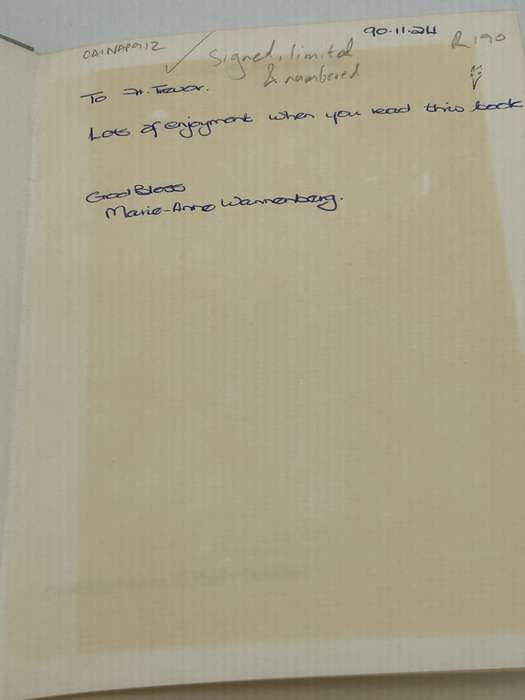 90.11.24
R190
Signed, limited
& numbered
To Fr. Trevor.
Lots of enjoyment when you read this book
God Bless
Marie-Anne Wannenberg.